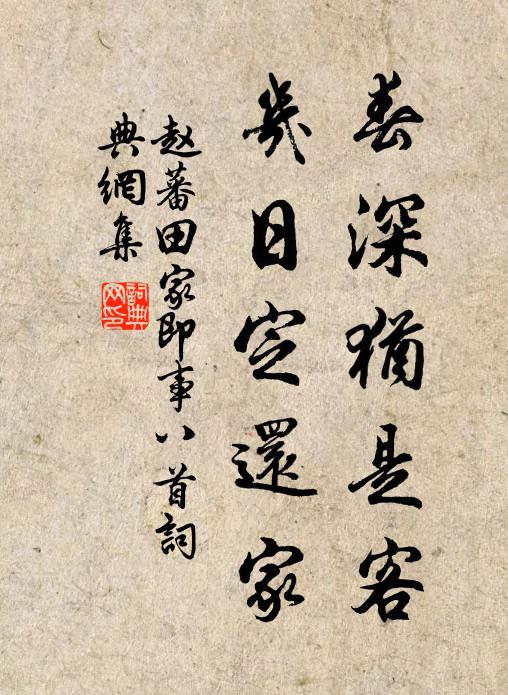 春深猶是客
幾日定還家
趙蕃田家即事八首詞
典網集
詞典網印